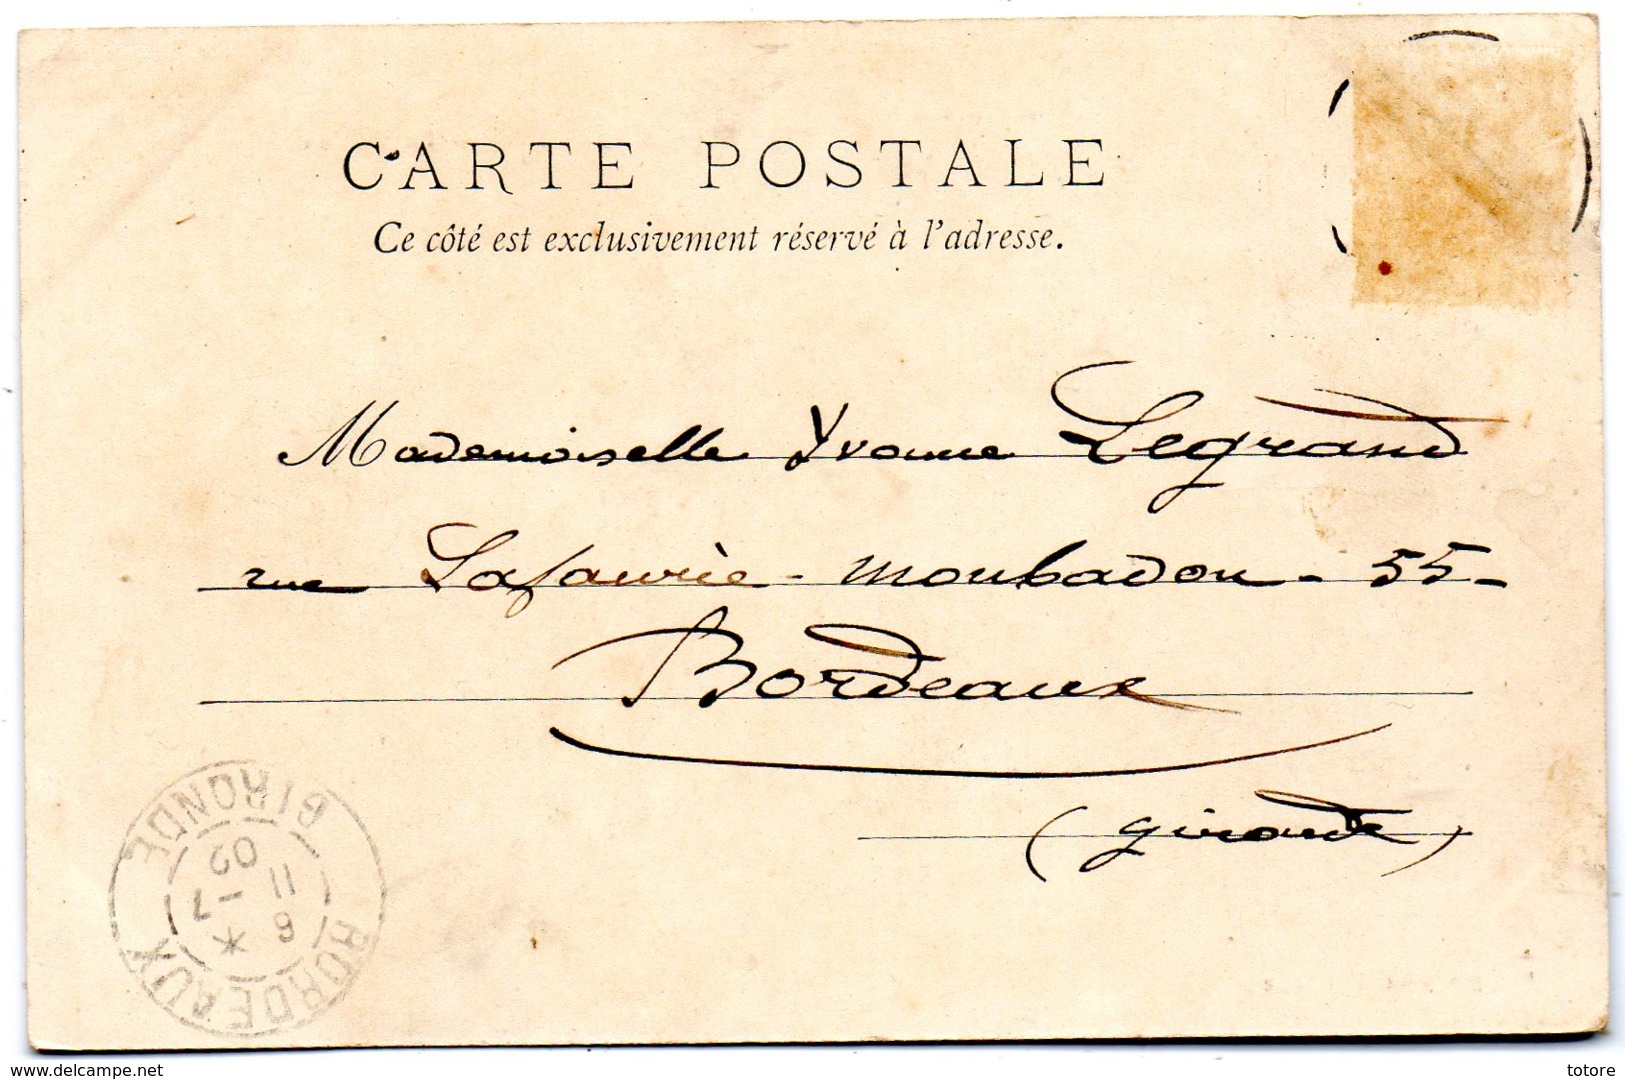 CARTE POSTALE
Ce côté est exclusivement réservé à l'adresse.
Mademoiselle Yvonne Legrand
rue Lafaurie - monbadon - 55 -
Bordeaux
(Gironde)
BORDEAUX GIRONDE
6 *
11 -7
02
www.delcampe.net
totore